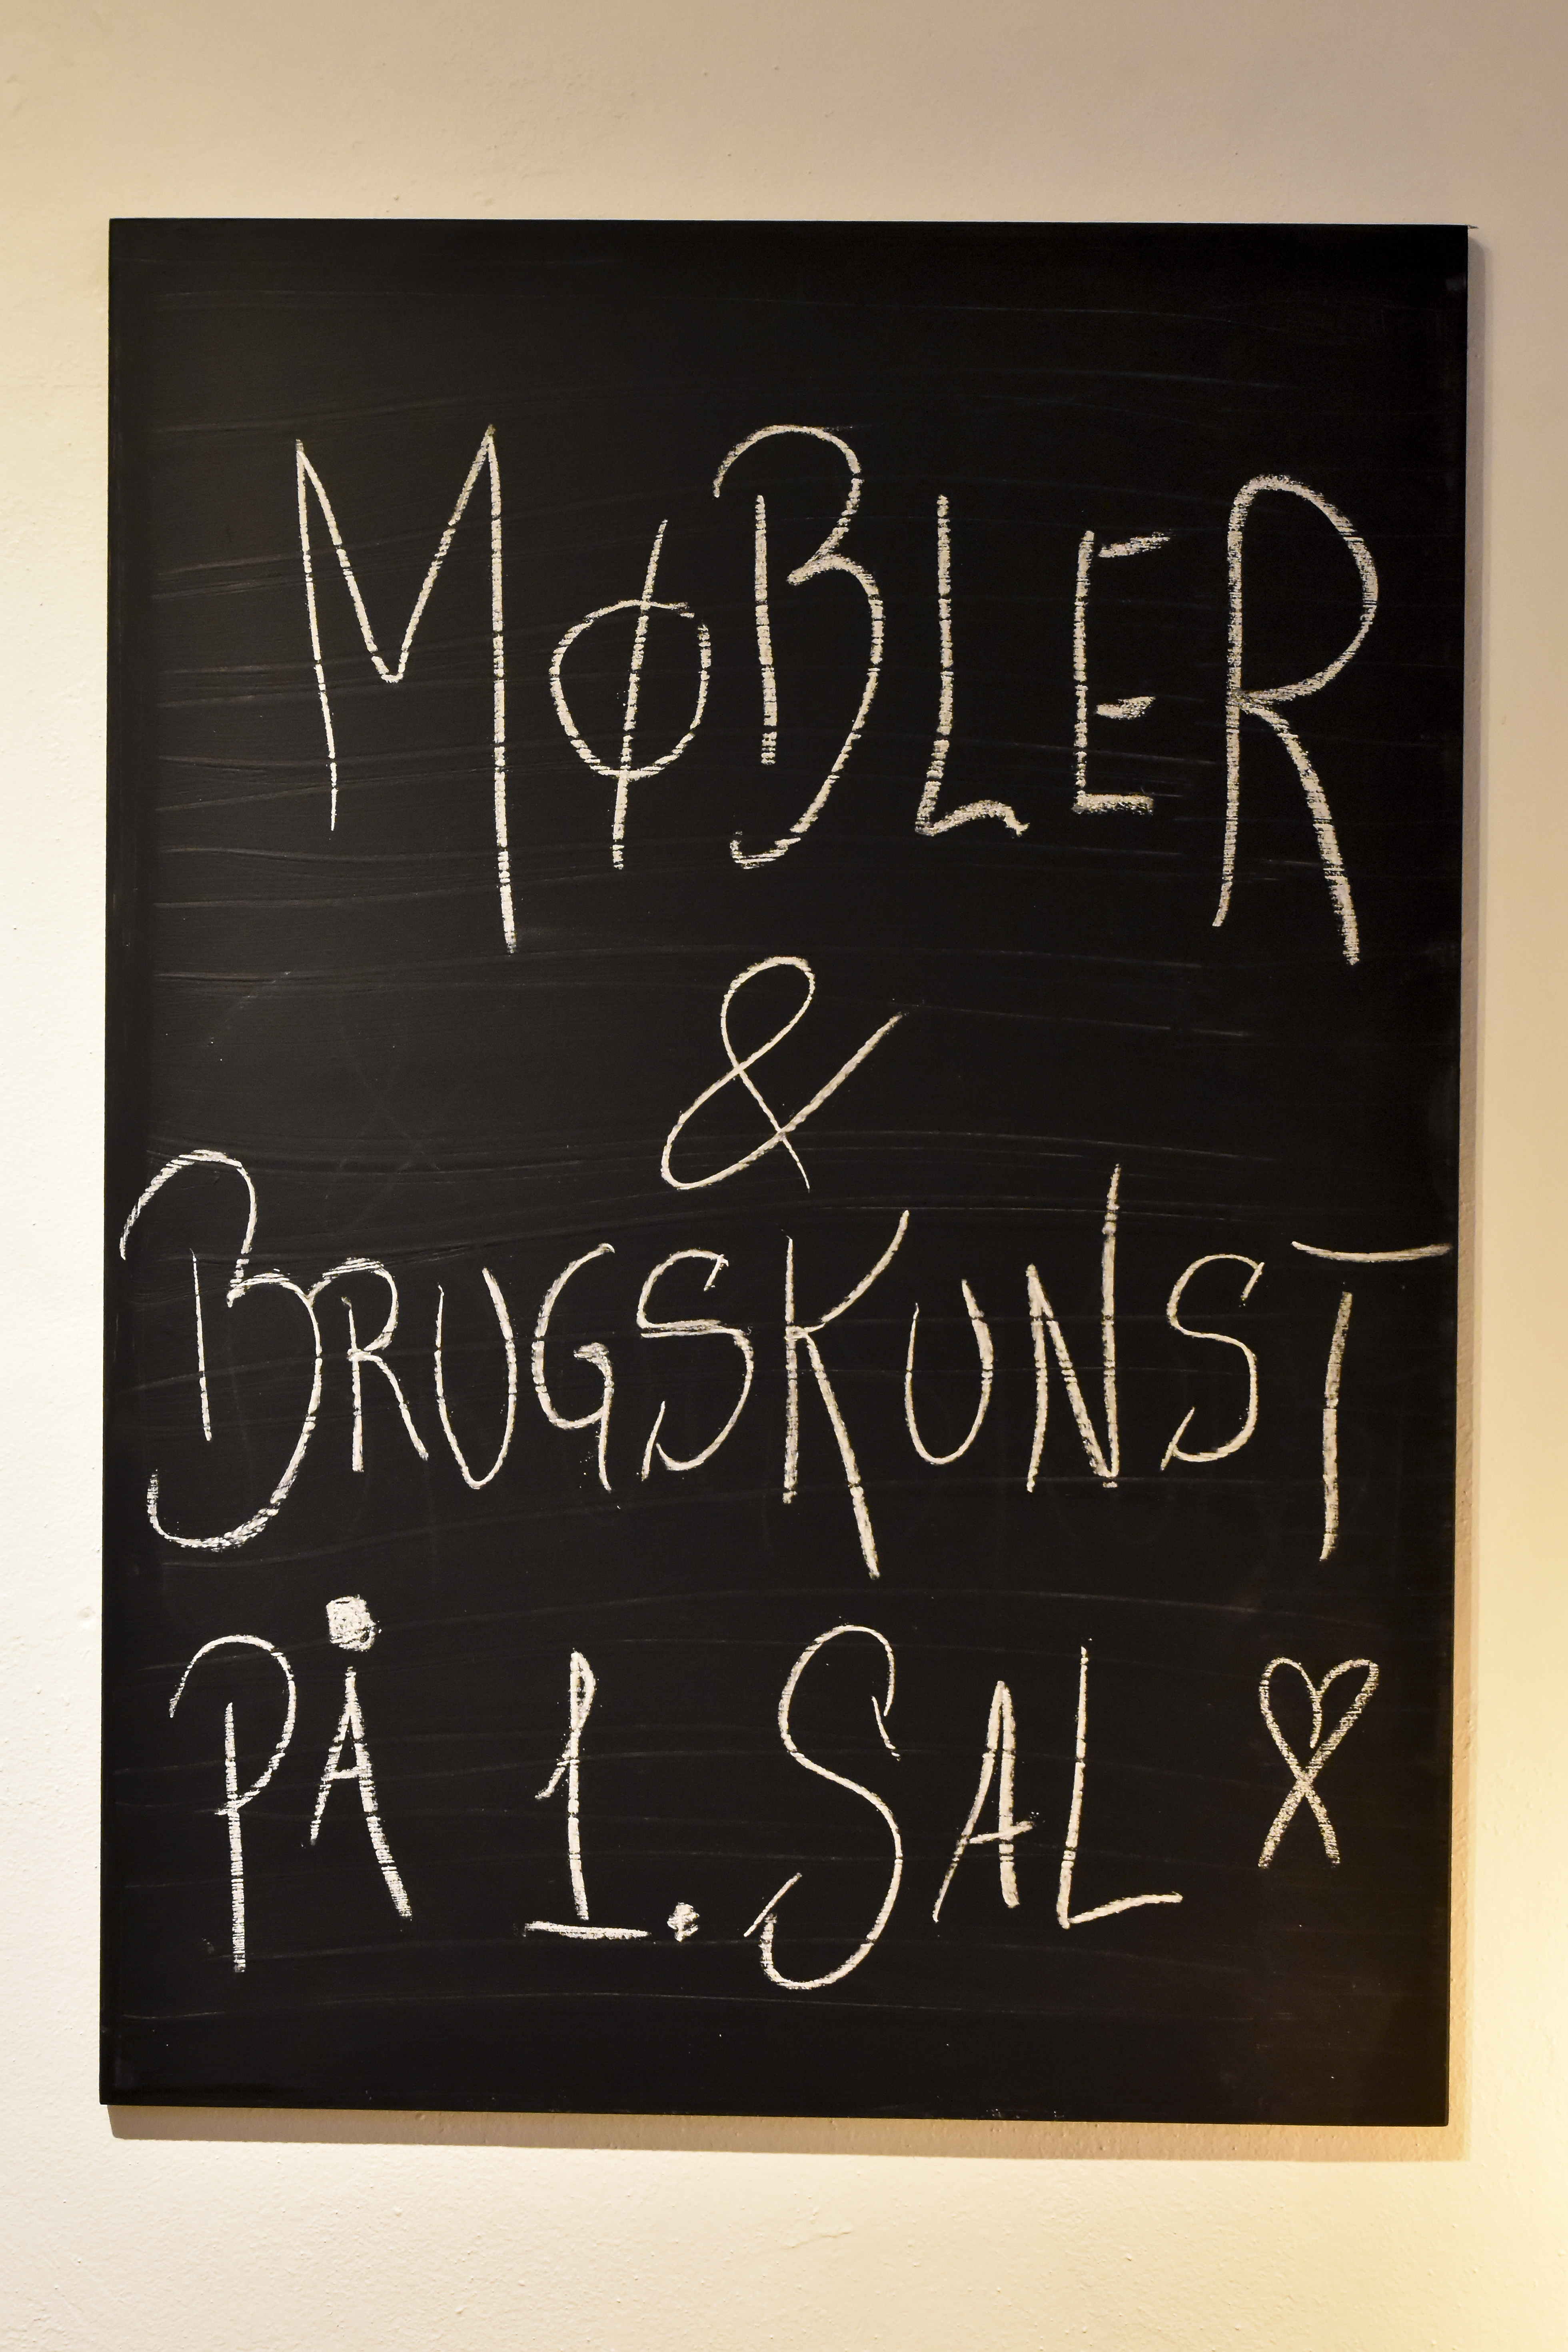 MØBLER
&
BRUGSKUNST
PÅ 1. SAL